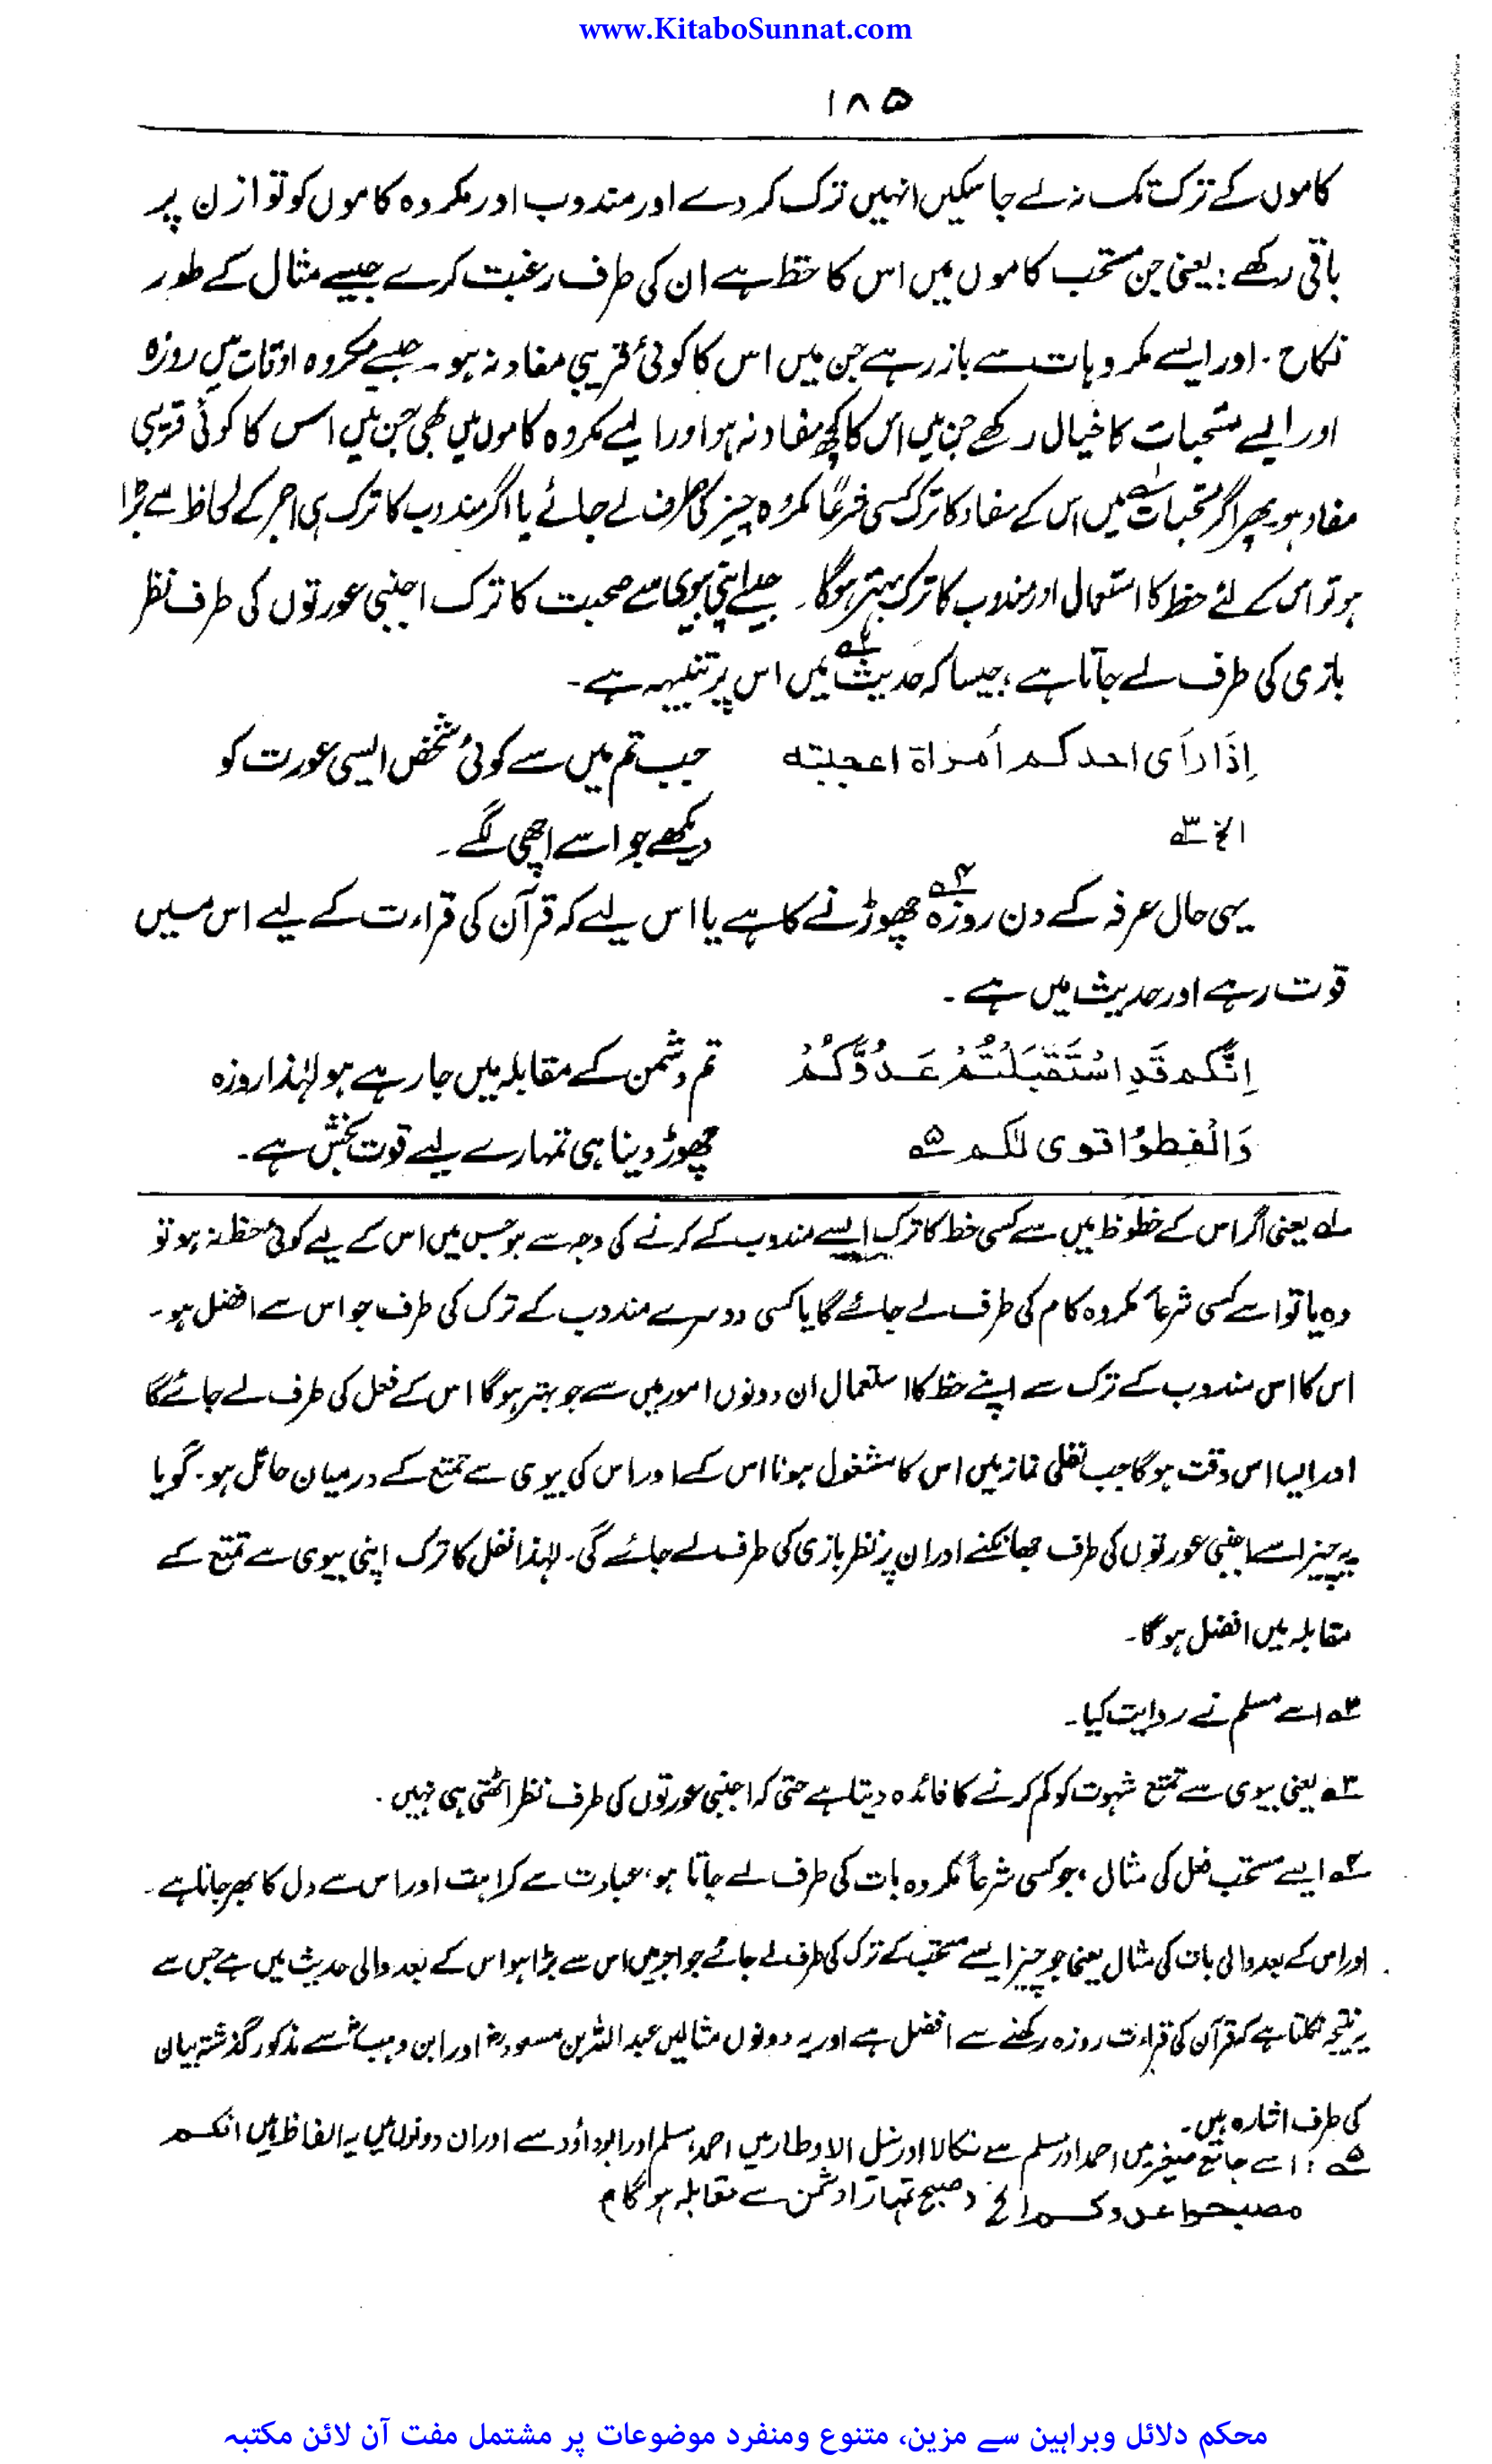 www.KitaboSunnat.com
۱۸۵
کاموں کے ترک تک نہ لے جا سکیں انہیں ترک کر دے اور مندوب اور مکروہ کاموں کو توازن پر
باقی رکھے : یعنی جن مستحب کاموں میں اس کا حظ ہے ان کی طرف رغبت کرے جیسے مثال کے طور
نکاح ۔ اور ایسے مکروہات سے باز رہے جن میں اس کا کوئی قریبی مفاد نہ ہو ۔ جیسے مکروہ اوقات میں روزہ
اور ایسے مستحبات کا خیال رکھے جن میں اس کا کچھ مفاد نہ ہو اور ایسے مکروہ کاموں میں بھی جن میں اس کا کوئی قریبی
مفاد ہو پھر اگر مستحبات ؎۱ میں اس کے مفاد کا ترک کسی شرعاً مکروہ چیز کی طرف لے جائے یا اگر مندوب کا ترک ہی اجر کے لحاظ سے بڑا
ہو تو اس کے لئے حظ کا استعمال اور مندوب کا ترک بہتر ہوگا ۔ جیسے اپنی بیوی سے صحبت کا ترک اجنبی عورتوں کی طرف نظر
بازی کی طرف لے جاتا ہے ، جیسا کہ حدیث ؎۲ میں اس پر تنبیہہ ہے ۔
اِذَا رَاَی احدکم اَمراۃ اعجبتہ
الخ ؎۳
جب تم میں سے کوئی شخص ایسی عورت کو
دیکھے جو اسے اچھی لگے ۔
یہی حال عرفہ کے دن روزہ ؎۴ چھوڑنے کا ہے یا اس لیے کہ قرآن کی قراءت کے لیے اس میں
قوت رہے اور حدیث میں ہے ۔
اِنَّکم قَدِ اسْتَقْبَلْتُمْ عَدُوَّکُمْ
وَالْفِطرُ اقوی لکم ؎۵
تم دشمن کے مقابلہ میں جا رہے ہو لہٰذا روزہ
چھوڑ دینا ہی تمہارے لیے قوت بخش ہے ۔
؎۱ یعنی اگر اس کے حظوظ میں سے کسی حظ کا ترک ایسے مندوب کے کرنے کی وجہ سے ہو جس میں اس کے لیے کوئی حظ نہ ہو تو
وہ یا تو اسے کسی شرعاً مکروہ کام کی طرف لے جائے گا یا کسی دوسرے مندوب کے ترک کی طرف جو اس سے افضل ہو ۔
اس کا اس مندوب کے ترک سے اپنے حظ کا استعمال ان دونوں امور میں سے جو بہتر ہوگا اس کے فعل کی طرف لے جائے گا
اور ایسا اس وقت ہوگا جب نفلی نماز میں اس کا مشغول ہونا اس کے اور اس کی بیوی سے تمتع کے درمیان حائل ہو ۔ گویا
یہ چیز اسے اجنبی عورتوں کی طرف جھانکنے اور ان پر نظر بازی کی طرف لے جائے گی ۔ لہٰذا نفل کا ترک اپنی بیوی سے تمتع کے
مقابلہ میں افضل ہوگا ۔
؎۲ اسے مسلم نے روایت کیا ۔
؎۳ یعنی بیوی سے تمتع شہوت کو کم کرنے کا فائدہ دیتا ہے حتی کہ اجنبی عورتوں کی طرف نظر اٹھتی ہی نہیں ۔
؎۴ ایسے مستحب فعل کی مثال ، جو کسی شرعاً مکروہ بات کی طرف لے جاتا ہو ، عبادت سے کراہت اور اس سے دل کا بھر جانا ہے ۔
اور اس کے بعد والی بات کی مثال یعنی جو چیز ایسے مستحب کے ترک کی طرف لے جائے جو اجر میں اس سے بڑا ہو اس کے بعد والی حدیث میں ہے جس سے
یہ نتیجہ نکلتا ہے کہ قرآن کی قراءت روزہ رکھنے سے افضل ہے اور یہ دونوں مثالیں عبداللہ بن مسعودؓ اور ابن وہبؒ سے مذکور گذشتہ بیان
کی طرف اشارہ ہیں ۔
؎۵ : اسے جامع صغیر میں احمد اور مسلم سے نکالا اور نیل الاوطار میں احمد، مسلم اور ابوداؤد سے اور ان دونوں میں یہ الفاظ ہیں انکم
مصبحوا عدوکم الخ (صبح تمہارا دشمن سے مقابلہ ہوگا) م
محکم دلائل وبراہین سے مزین، متنوع ومنفرد موضوعات پر مشتمل مفت آن لائن مکتبہ